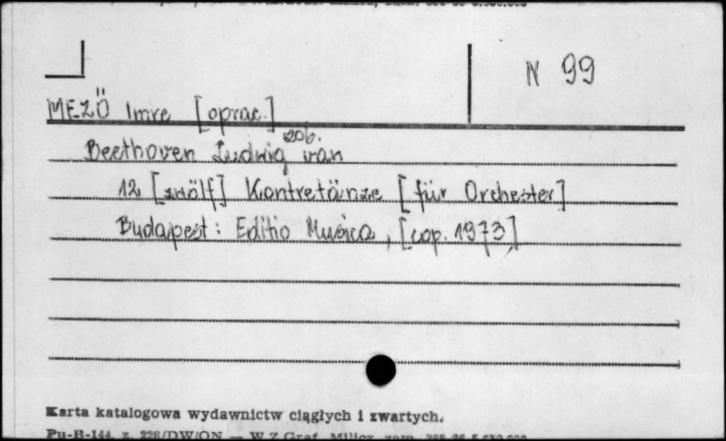 N 99
MEZÖ Imre [oprac.]
zob.
Beethoven Ludwig van
12 [zwölf] Kontretänze [für Orchester]
Budapest: Editio Musica, [cop. 1973]
Karta katalogowa wydawnictw ciągłych i zwartych.
Pu-B-144, z. 228/DW/ON — W.Z.Graf. Milicz, zam.